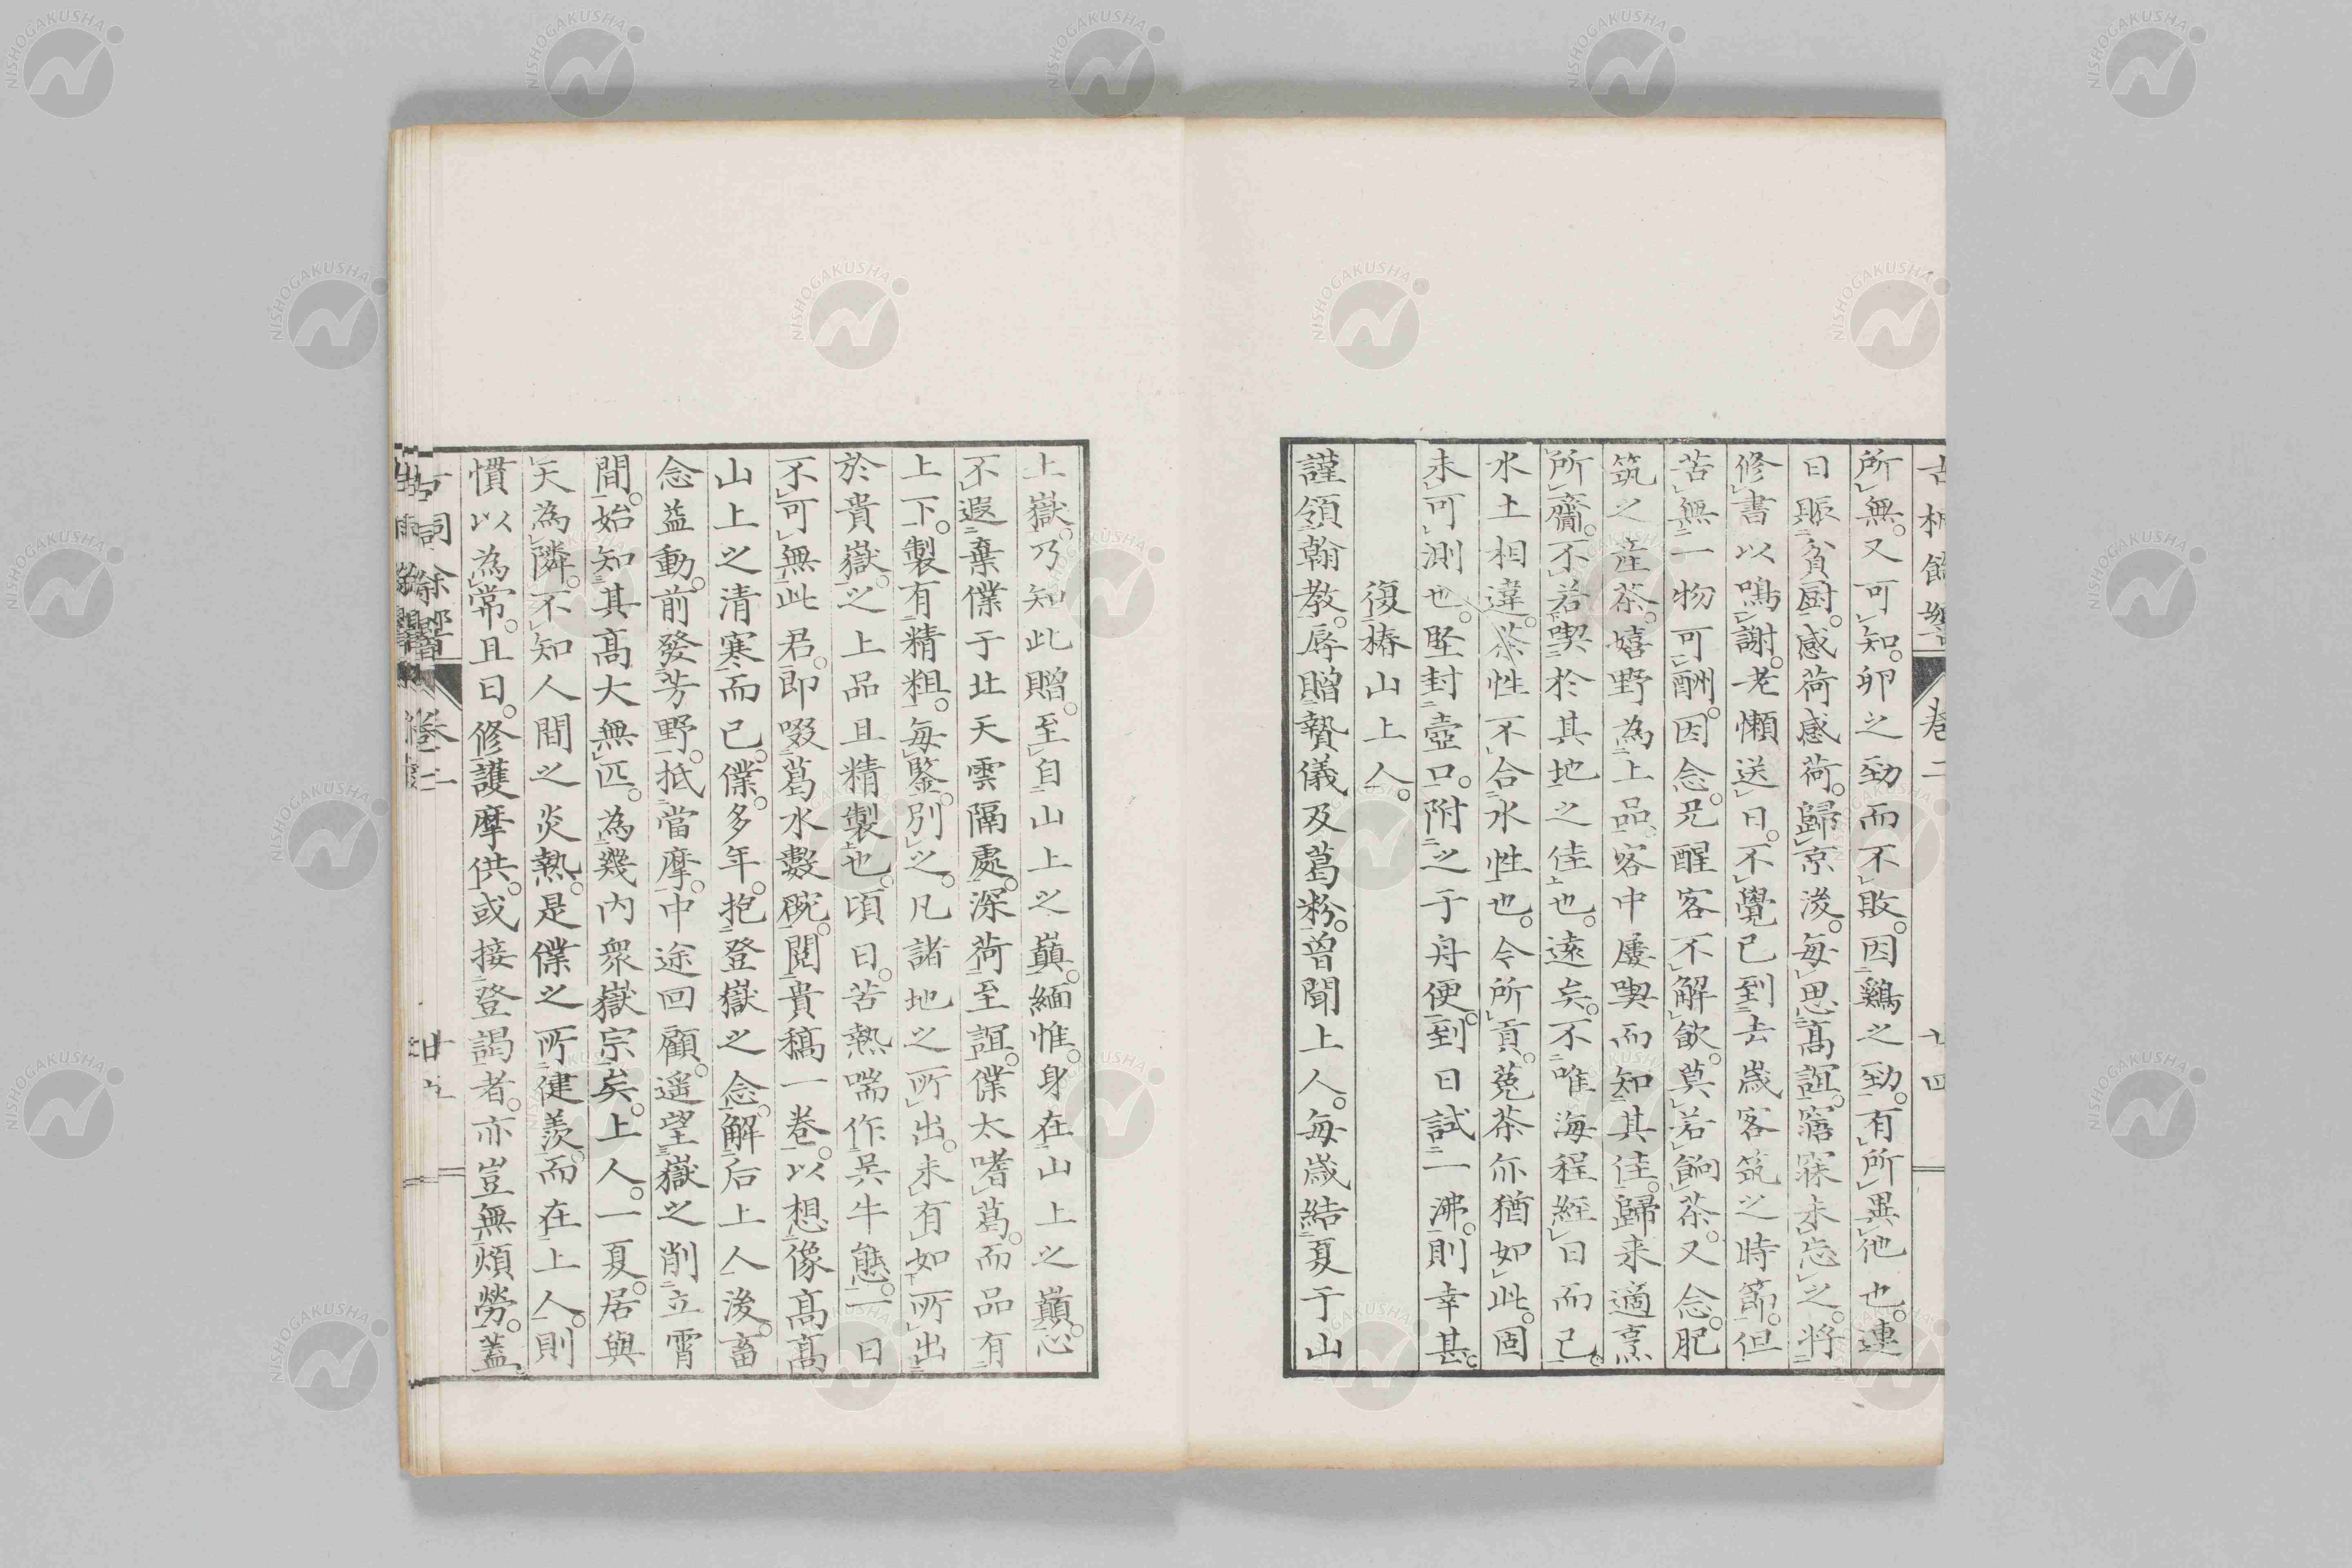 所無。又可知。卵之勁而不敗。因鷄之勁。有所異他也。連
日賑貧厨。感荷感荷。歸京後。毎思髙誼。寤寐未忘之。將
修書以鳴謝。老懶送日。不覺已到去歳客筑之時節。但
苦無一物可酬。因念。兄醒客不解飲。莫若餉茶。又念。肥
筑之産茶。嬉野為上品。客中屢喫而知其佳。歸来適烹
所齎。不若喫於其地之佳也。遠矣。不唯海程經日而已。
水土相違。茶性不合水性也。今所貢。菟茶亦猶如此。固
未可測也。堅封壺口。附之于舟便。到日試一沸。則幸甚。
復椿山上人。
謹領翰教。辱贈贄儀及葛粉。曽聞上人。毎歳結夏于山
上嶽。乃知此贈。至自山上之巓。緬惟。身在山上之巓。心
不遐棄僕于北天雲隔處。深荷至誼。僕太嗜葛。而品有
上下。製有精粗。毎鑒別之。凡諸地之所出。未有如所出
於貴嶽。之上品且精製也。頃日。苦熱喘作呉牛態。一日
不可無此君。即啜葛水數碗。閲貴稿一巻。以想像髙髙
山上之清寒而已。僕。多年。抱登嶽之念。解后上人後。畜
念益動。前發芳野。抵當摩。中途回顧。遥望嶽之削立霄
間。始知其髙大無匹。為幾内衆嶽宗矣。上人。一夏。居與
天為隣。不知人間之炎熱。是僕之所健羨。而在上人。則
慣以為常。且日。修護摩供。或接登謁者。亦豈無煩勞。蓋
巻二